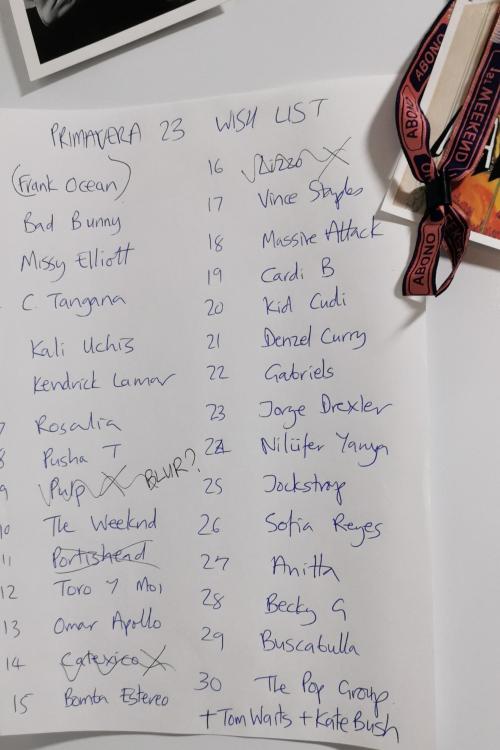 PRIMAVERA 23 WISH LIST
(Frank Ocean)
Bad Bunny
Missy Elliott
C. Tangana
Kali Uchis
Kendrick Lamar
7 Rosalia
8 Pusha T
9 Pulp X BLUR?
10 The Weeknd
11 Portishead
12 Toro Y Moi
13 Omar Apollo
14 Calexico X
15 Bomba Estereo
16 Lizzo X
17 Vince Staples
18 Massive Attack
19 Cardi B
20 Kid Cudi
21 Denzel Curry
22 Gabriels
23 Jorge Drexler
24 Nilüfer Yanya
25 Jockstrap
26 Sofia Reyes
27 Anitta
28 Becky G
29 Buscabulla
30 The Pop Group
+ Tom Waits + Kate Bush
ABONO
ABONO
1st WEEKEND
ABONO